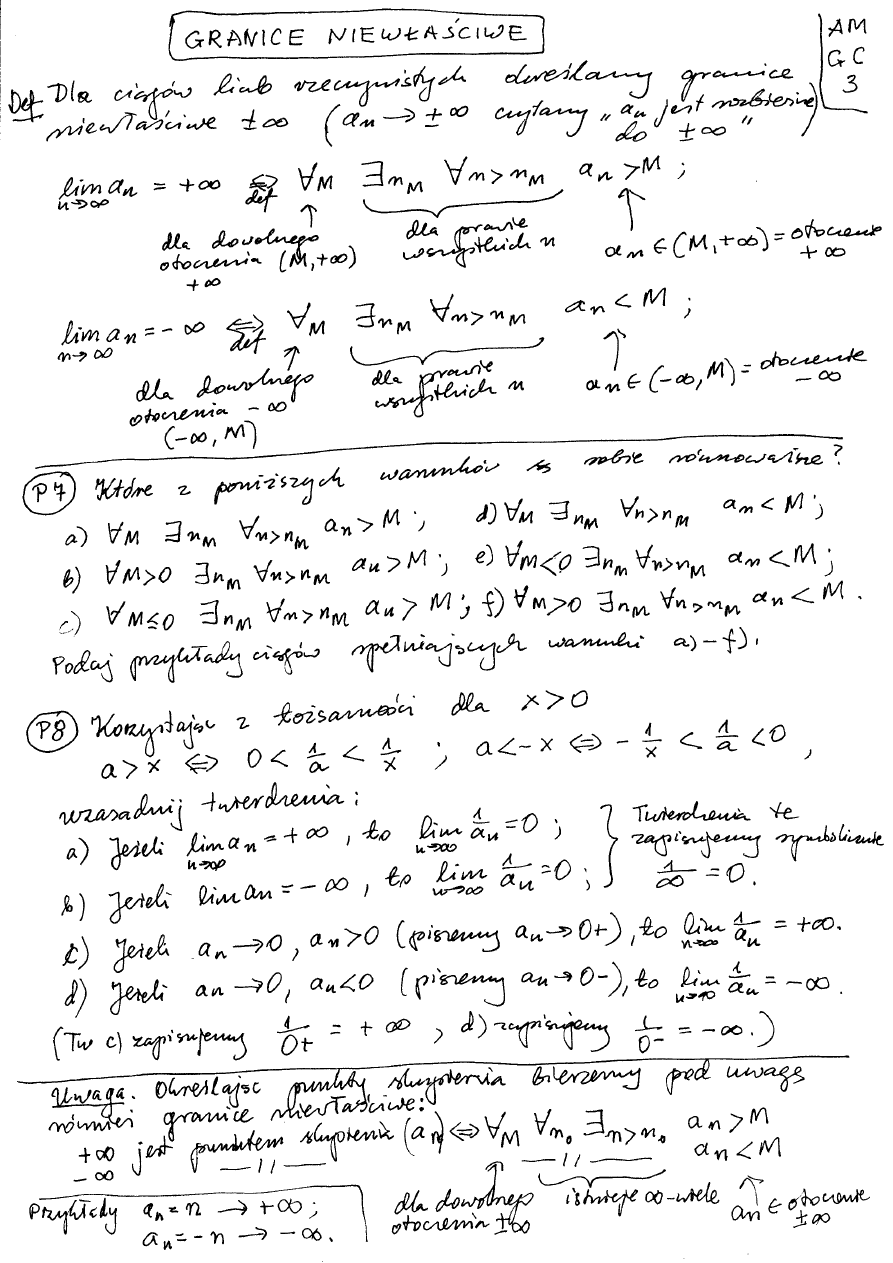 GRANICE NIEWŁAŚCIWE
AM
GC
3
Def Dla ciągów liczb rzeczywistych określamy granice
niewłaściwe ±∞ (an → ±∞ czytamy „an jest rozbieżne
do ±∞")
lim an = +∞ ⇔ ∀M ∃nM ∀n>nM an > M ;
n→∞ def
dla dowolnego otoczenia (M,+∞) +∞
dla prawie wszystkich n
an ∈ (M,+∞) = otoczenie +∞
lim an = -∞ ⇔ ∀M ∃nM ∀n>nM an < M ;
n→∞ def
dla dowolnego otoczenia -∞ (-∞, M)
dla prawie wszystkich n
an ∈ (-∞, M) = otoczenie -∞
P7 Które z poniższych warunków są sobie równoważne?
a) ∀M ∃nM ∀n>nM an > M ; d) ∀M ∃nM ∀n>nM an < M ;
b) ∀M>0 ∃nM ∀n>nM an > M ; e) ∀M<0 ∃nM ∀n>nM an < M ;
c) ∀M≤0 ∃nM ∀n>nM an > M ; f) ∀M>0 ∃nM ∀n>nM an < M .
Podaj przykłady ciągów spełniających warunki a)-f).
P8 Korzystając z tożsamości dla x>0
a > x ⇔ 0 < 1/a < 1/x ; a < -x ⇔ -1/x < 1/a < 0 ,
uzasadnij twierdzenia :
a) Jeżeli lim an = +∞ , to lim 1/an = 0 ;
n→∞ n→∞
b) Jeżeli lim an = -∞ , to lim 1/an = 0 ;
n→∞
Twierdzenia te
zapisujemy symbolicznie
1/∞ = 0.
c) Jeżeli an → 0 , an > 0 (piszemy an → 0+), to lim 1/an = +∞.
n→∞
d) Jeżeli an → 0, an < 0 (piszemy an → 0-), to lim 1/an = -∞.
n→∞
(Tw c) zapisujemy 1/0+ = +∞ , d) zapisujemy 1/0- = -∞.)
Uwaga. Określając punkty skupienia bierzemy pod uwagę
również granice niewłaściwe:
+∞ jest punktem skupienia (an) ⇔ ∀M ∀n₀ ∃n>n₀ an > M
-∞ —//— —//— an < M
dla dowolnego otoczenia ±∞
istnieje ∞-wiele
an ∈ otoczenie ±∞
Przykłady an = n → +∞ ;
an = -n → -∞.